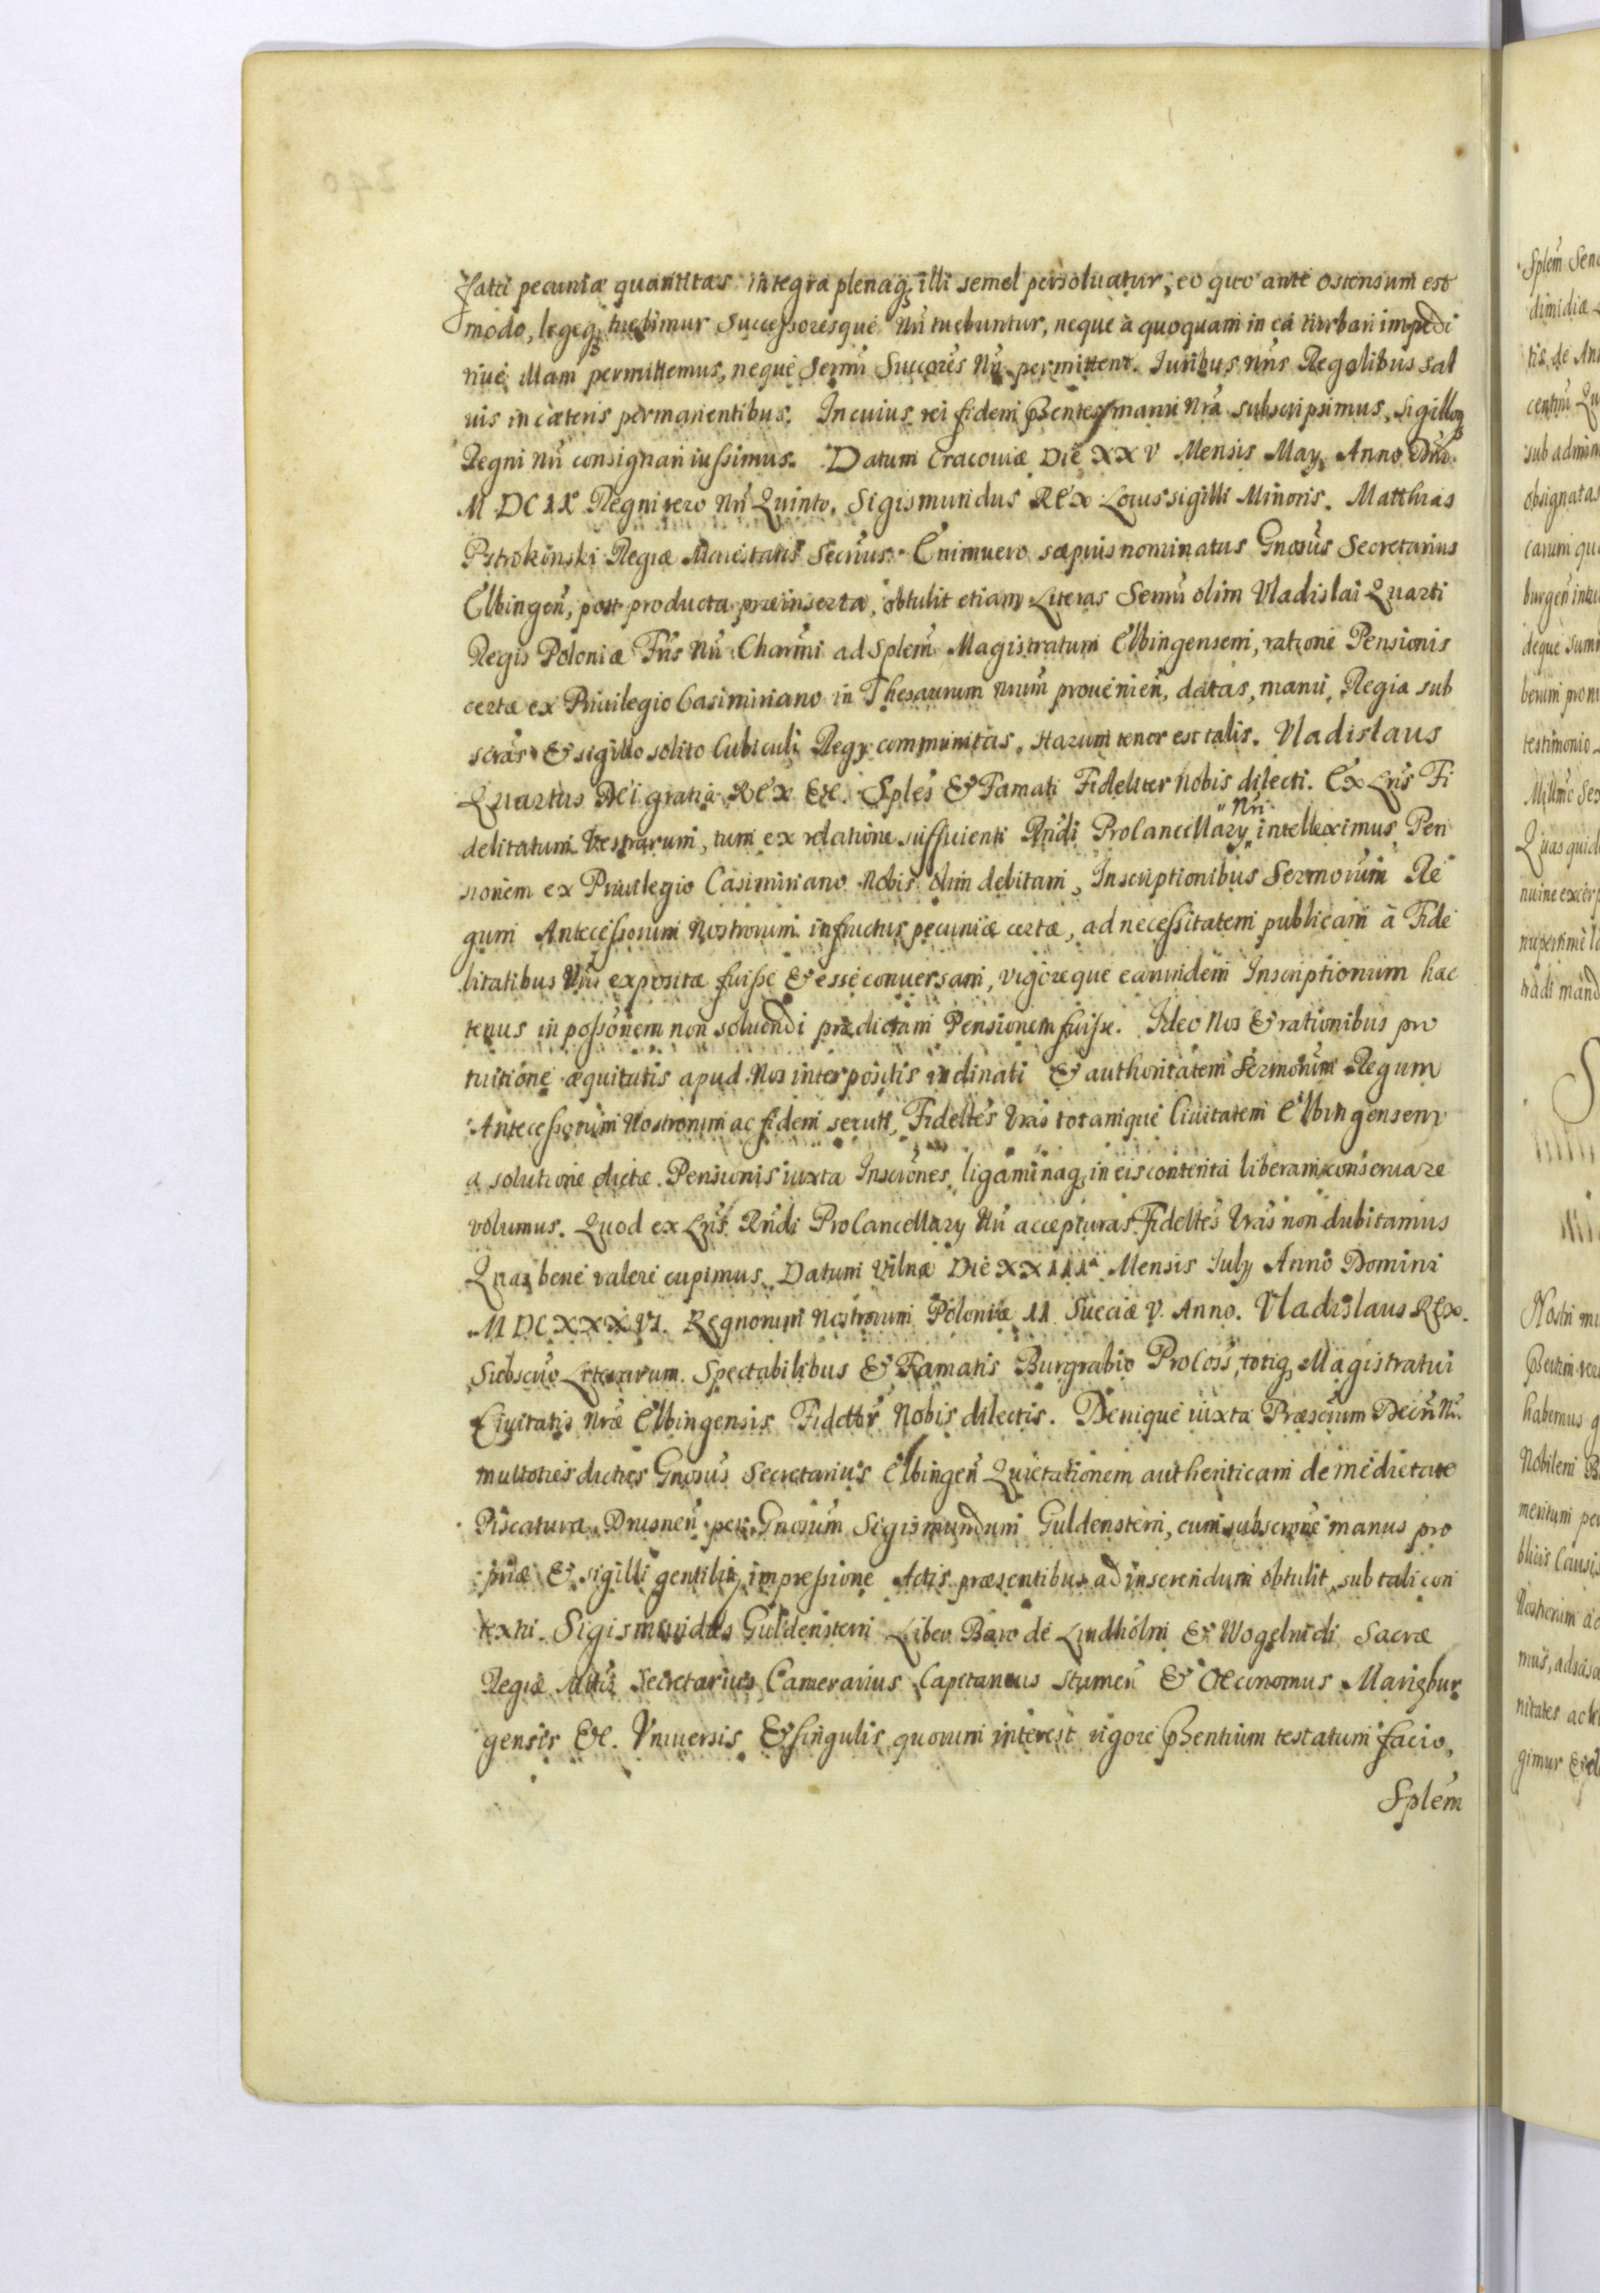 fatæ pecuniæ quantitas integra plenaq; illi semel persoluatur, eo quo ante ostensum est
modo, legeq; tuebimur Successoresque Nri tuebuntur, neque à quoquam in ea turbari impedi
riue illam permittemus, neque Sermi Succores Nri permittent. Iuribus Nris Regalibus sal
uis in cæteris permanentibus. In cuius rei fidem Pntes manu Nra subscripsimus, sigilloq;
Regni Nri consignari iussimus. Datum Cracouiæ Die XXV Mensis May, Anno Dni
M DC IX Regni vero Nri Quinto. Sigismundus REX Locus sigilli Minoris. Matthias
Pstrokonski Regiæ Maiestatis Secrius. Enimuero sæpius nominatus Gnosus Secretarius
Elbingen, post producta præinserta, obtulit etiam Literas Sermi olim Vladislai Quarti
Regis Poloniæ Fris Nri Charmi ad Splem Magistratum Elbingensem, ratione Pensionis
certæ ex Priuilegio Casimiriano in Thesaurum nrum prouenien, datas, manu Regia sub
scras & sigillo solito Cubiculi Regy communitas. Harum tenor est talis. Vladislaus
Quartus Dei gratia REX &c. Sples & Famati Fideliter nobis dilecti. Ex Lris Fi
delitatum Vestrarum, tum ex relatione sufficienti Rndi Procancellary Nri intelleximus, Pen
sionem ex Priuilegio Casimiriano Nobis olim debitam, Inscriptionibus Sermorum Re
gum Antecessorum Nostrorum in fructus pecuniæ certæ, ad necessitatem publicam à Fide
litatibus Vris expositæ fuisse & esse conuersam, vigoreque earundem Inscriptionum hac
tenus in possonem non soluendi prædictam Pensionem fuisse. Ideo Nos & rationibus pro
tuitione æquitatis apud Nos interpositis inclinati & authoritatem Sermorum Regum
Antecessorum Nostrorum ac fidem secuti, Fideltes Vras totamque Ciuitatem Elbingensem
a solutione dictæ Pensionis iuxta Inscriones ligaminaq; in eis contenta liberam conseruare
volumus. Quod ex Lris Rndi ProCancellary Nri accepturas Fideltes Vras non dubitamus
Quas bene valere cupimus. Datum Vilnæ Die XXIII Mensis July Anno Domini
M DC XXXVI. Regnorum Nostrorum Poloniæ II Sueciæ V. Anno. Vladislaus REX.
Subscrio Literarum. Spectabilibus & Famatis Burgrabio Procoss, totiq; Magistratui
Ciuitatis Nræ Elbingensis Fideltr Nobis dilectis. Denique iuxta Præscrum Decri Nri
multoties dictus Gnosus Secretarius Elbingen Quietationem authenticam de medietate
Piscaturæ Drusnen per Gnosum Sigismundum Guldenstern, cum subscrone manus pro
priæ & sigilli gentility impressione Actis præsentibus ad inserendum obtulit, sub tali con
textu. Sigismundus Guldenstern Liber Baro de Lundholm & Wogelwidi Sacræ
Regiæ Mttis Secretarius Camerarius Capitaneus Stumen & Oeconomus Marigbur
gensis &c. Vniuersis & singulis quorum interest vigore Pntium testatum facio,
Splem